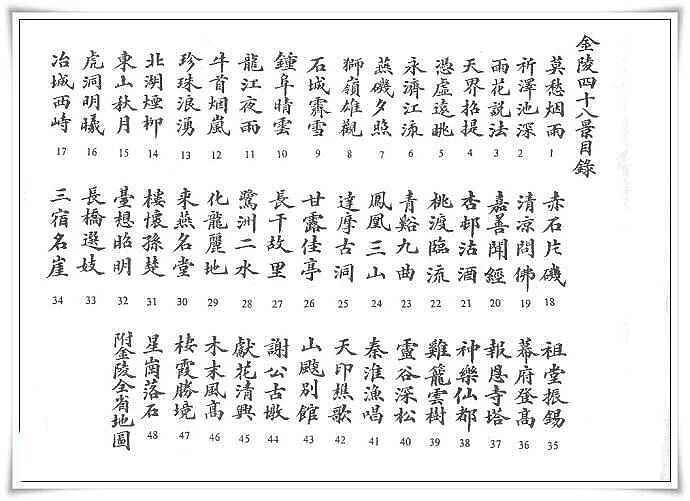 金陵四十八景目錄
莫愁烟雨 1
祈澤池深 2
雨花説法 3
天界招提 4
憑虛遠眺 5
永濟江流 6
燕磯夕照 7
獅嶺雄觀 8
石城霽雪 9
鍾阜晴雲 10
龍江夜雨 11
牛首烟嵐 12
珍珠浪湧 13
北湖煙柳 14
東山秋月 15
虎洞明曦 16
冶城西峙 17
赤石片磯 18
清凉問佛 19
嘉善聞經 20
杏邨沽酒 21
桃渡臨流 22
青谿九曲 23
鳳凰三山 24
達摩古洞 25
甘露佳亭 26
長干故里 27
鷺洲二水 28
化龍麗地 29
來燕名堂 30
樓懷孫楚 31
臺想昭明 32
長橋選妓 33
三宿名崖 34
祖堂振錫 35
幕府登高 36
報恩寺塔 37
神樂仙都 38
雞籠雲樹 39
靈谷深松 40
秦淮漁唱 41
天印樵歌 42
山颴別館 43
謝公古墩 44
獻花清興 45
木末風高 46
棲霞勝境 47
星崗落石 48
附金陵全省地圖